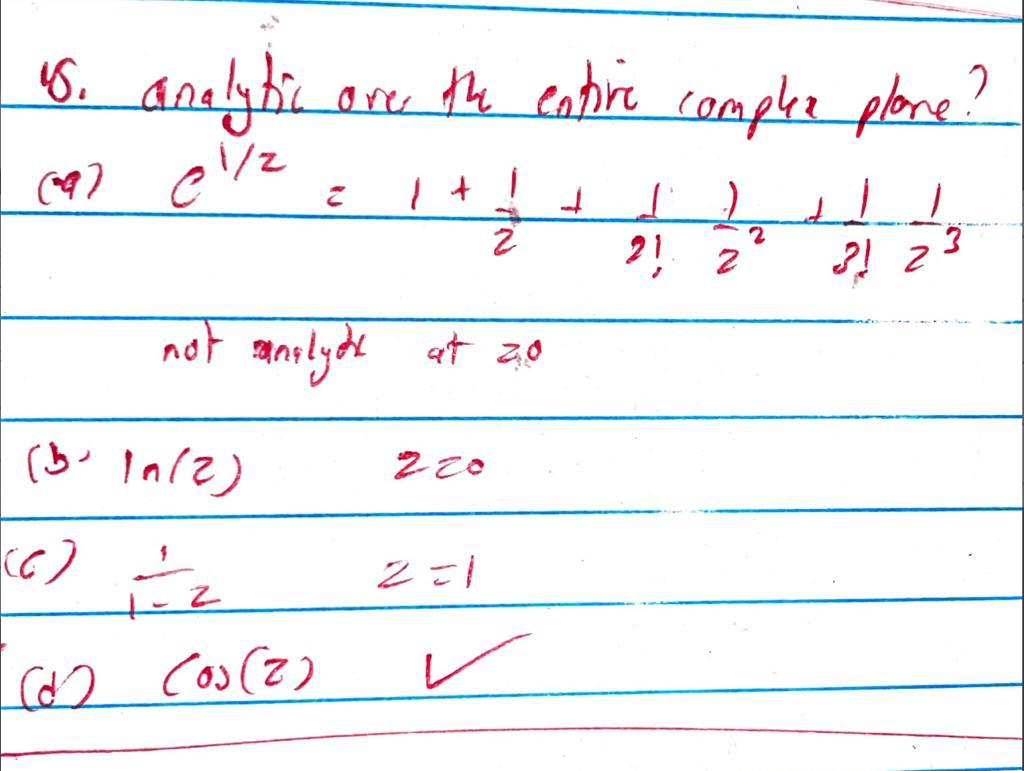 45. analytic over the entire complex plane?
(a) e^1/z = 1 + 1/z + 1/2! 1/z^2 + 1/3! 1/z^3
not analytic at z=0
(b) ln(z) z=0
(c) 1/1-z z=1
(d) cos(z) ✓